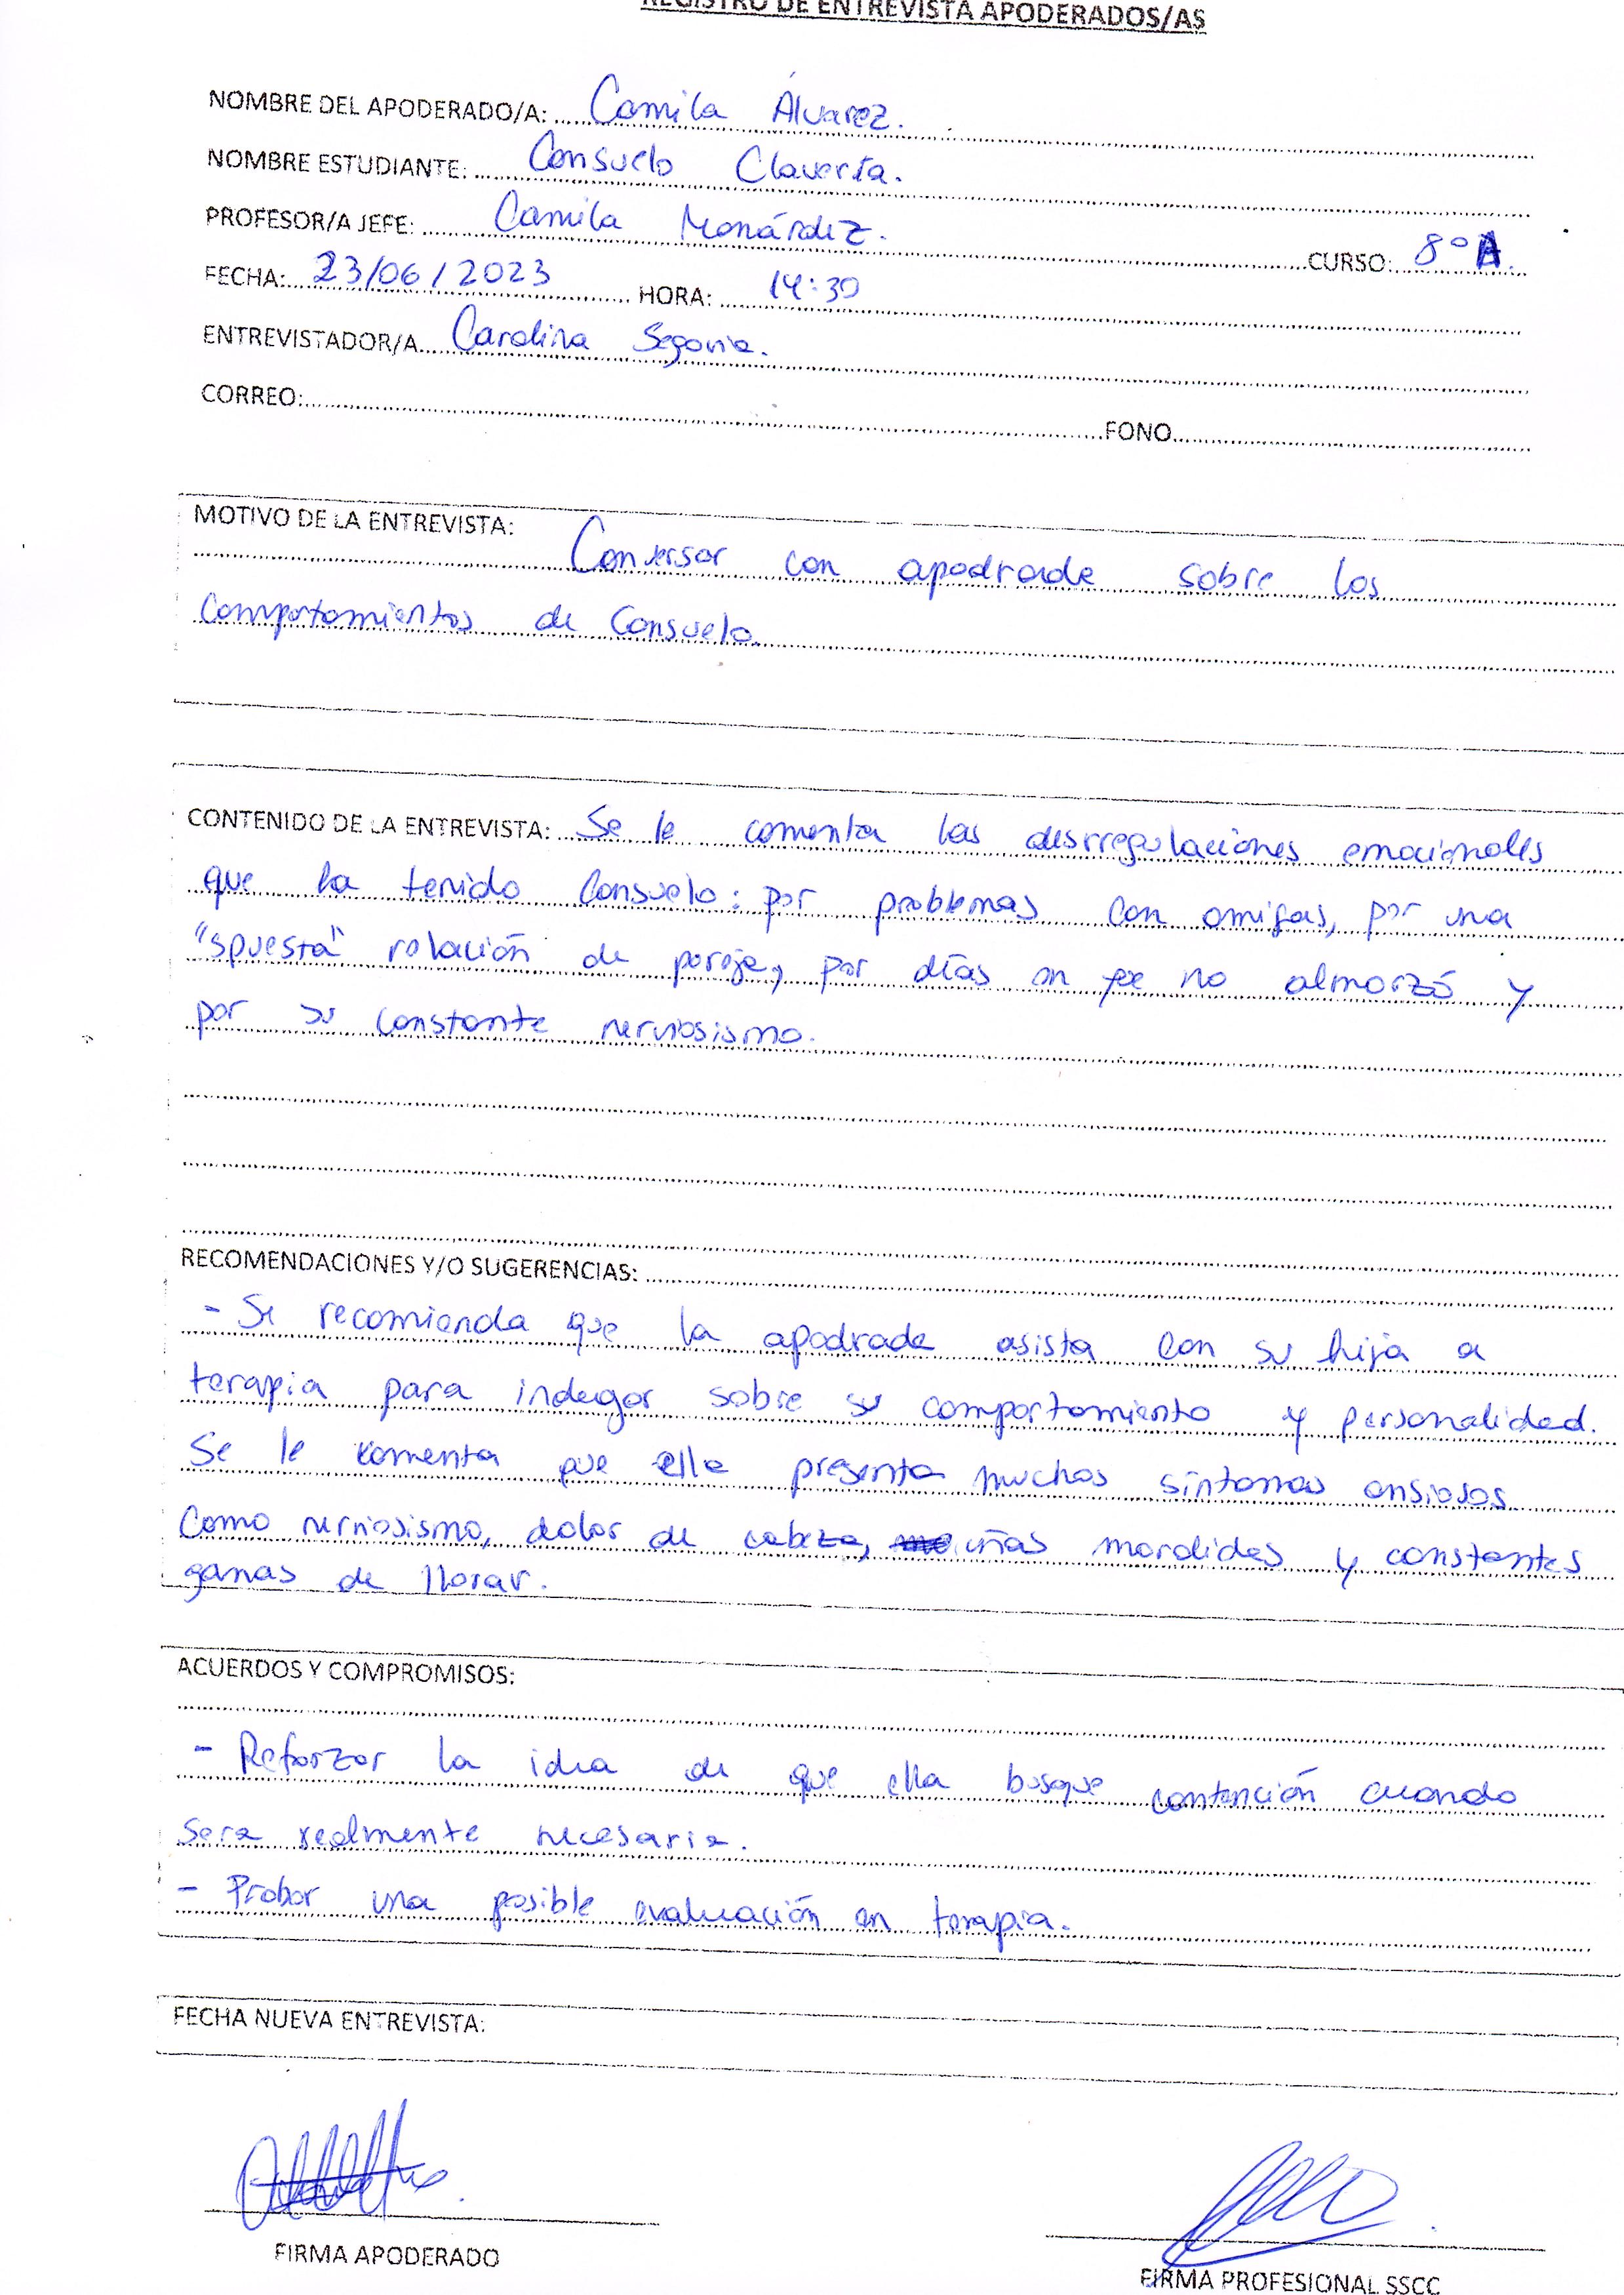 REGISTRO DE ENTREVISTA APODERADOS/AS
NOMBRE DEL APODERADO/A: Camila Álvarez.
NOMBRE ESTUDIANTE: Consuelo Clavería.
PROFESOR/A JEFE: Camila Monárdez. CURSO: 8° A.
FECHA: 23/06/2023 HORA: 14:30
ENTREVISTADOR/A Carolina Segovia.
CORREO: FONO
MOTIVO DE LA ENTREVISTA:
Conversar con apodrada sobre los
comportamientos de Consuelo.
CONTENIDO DE LA ENTREVISTA: Se le comenta las desrregulaciones emocionales
que ha tenido Consuelo: por problemas con amigas, por una
"spuesta" relación de pareja, por días en que no almorzó y
por su constante nerviosismo.
RECOMENDACIONES Y/O SUGERENCIAS:
- Se recomienda que la apodrada asista con su hija a
terapia para indagar sobre su comportamiento y personalidad.
Se le comenta que ella presenta muchos síntomas ansiosos
como nerviosismo, dolor de cabeza, uñas mordidas y constantes
ganas de llorar.
ACUERDOS Y COMPROMISOS:
- Reforzar la idea de que ella busque contención cuando
sera realmente necesaria.
- Probar una posible evaluación en terapia.
FECHA NUEVA ENTREVISTA:
FIRMA APODERADO
FIRMA PROFESIONAL SSCC